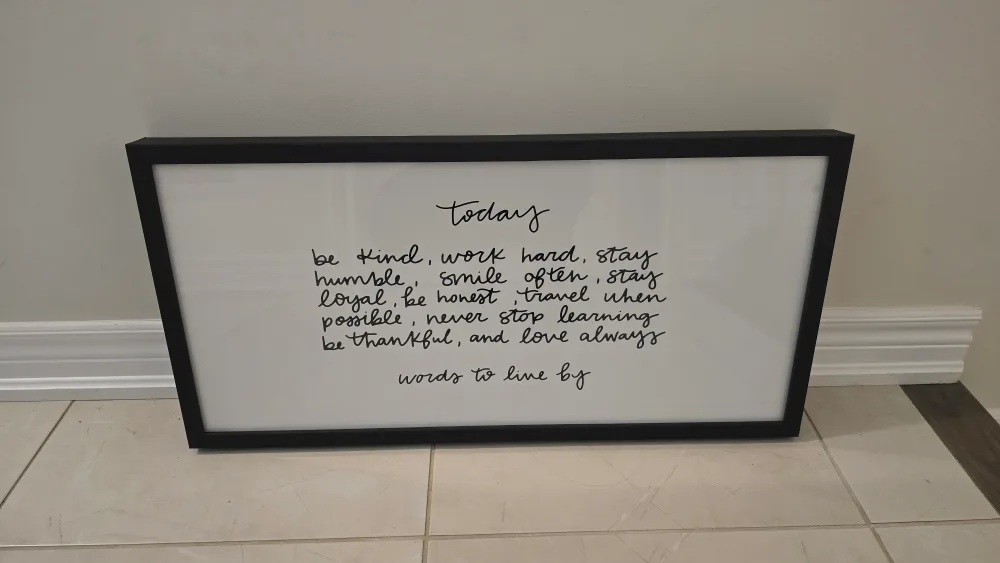 today
be kind, work hard, stay
humble, smile often, stay
loyal, be honest, travel when
possible, never stop learning
be thankful, and love always
words to live by